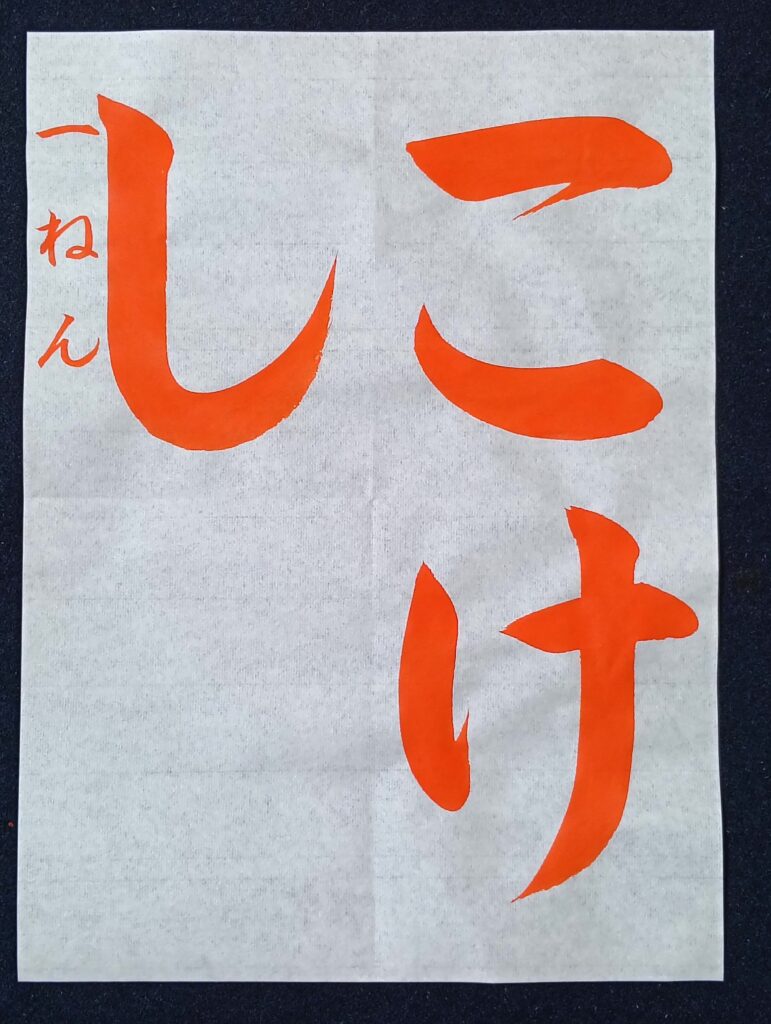 こけ
し
一ねん